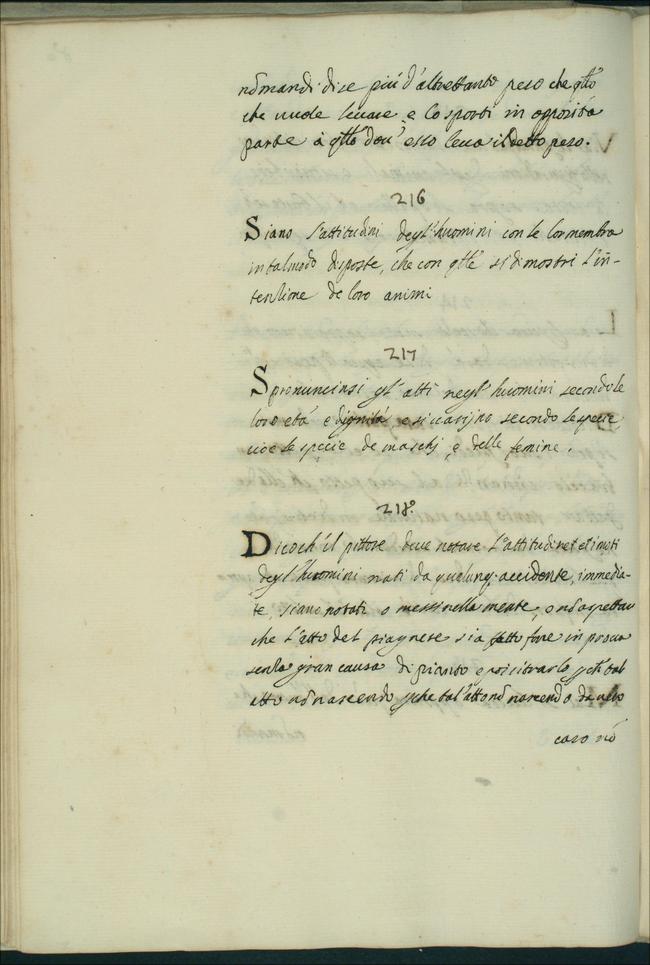 nõmandi di se più d'altrettanto peso che q̃llo
che vuole levare, e lo sporti in opposita
parte à q̃lla dov' esso leva il detto peso.
216
Siano l'attitudini degl'huomini con le lor membra
in tal modo disposte, che con q̃lle si dimostri l'in-
tenzione de loro animi
217
Spronuncinsi gl' atti negl' huomini secondo le
loro età e dignità, e si varijno secondo le specie,
cioè le specie de maschj, e delle femine.
218.
Dico ch'il pittore deve notare l'attitudine et li moti
degl'huomini nati da qualunq; accidente, immedia-
te, siano notati o messi nella mente, o nõ aspettar
che l'atto del piagnere sia fatto fare in prova
senza gran causa di pianto e poi ritrarlo
atto nõ nascendo che tal'atto nõ nascendo da vero
caso nõ